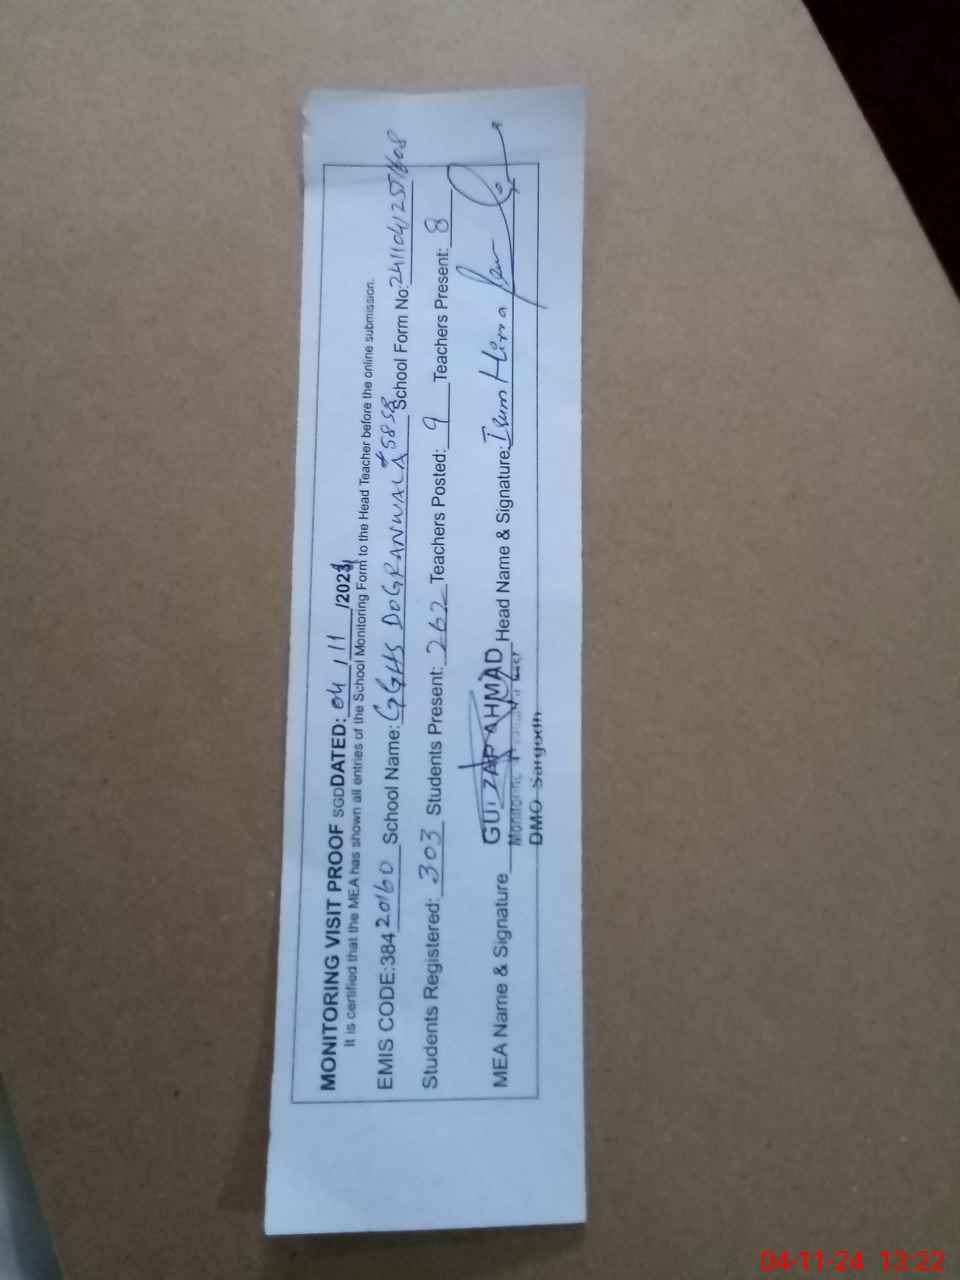 MONITORING VISIT PROOF SGDDATED: 04/11/2024
It is certified that the MEA has shown all entries of the School Monitoring Form to the Head Teacher before the online submission.
EMIS CODE:38420160 School Name: GGHS DOGRANWALA 58SB School Form No:
Students Registered: 303 Students Present: 262 Teachers Posted: 9 Teachers Present: 8
MEA Name & Signature GULZAR AHMAD Head Name & Signature: Hina
DMO Sargodh
04-11-24 13:22